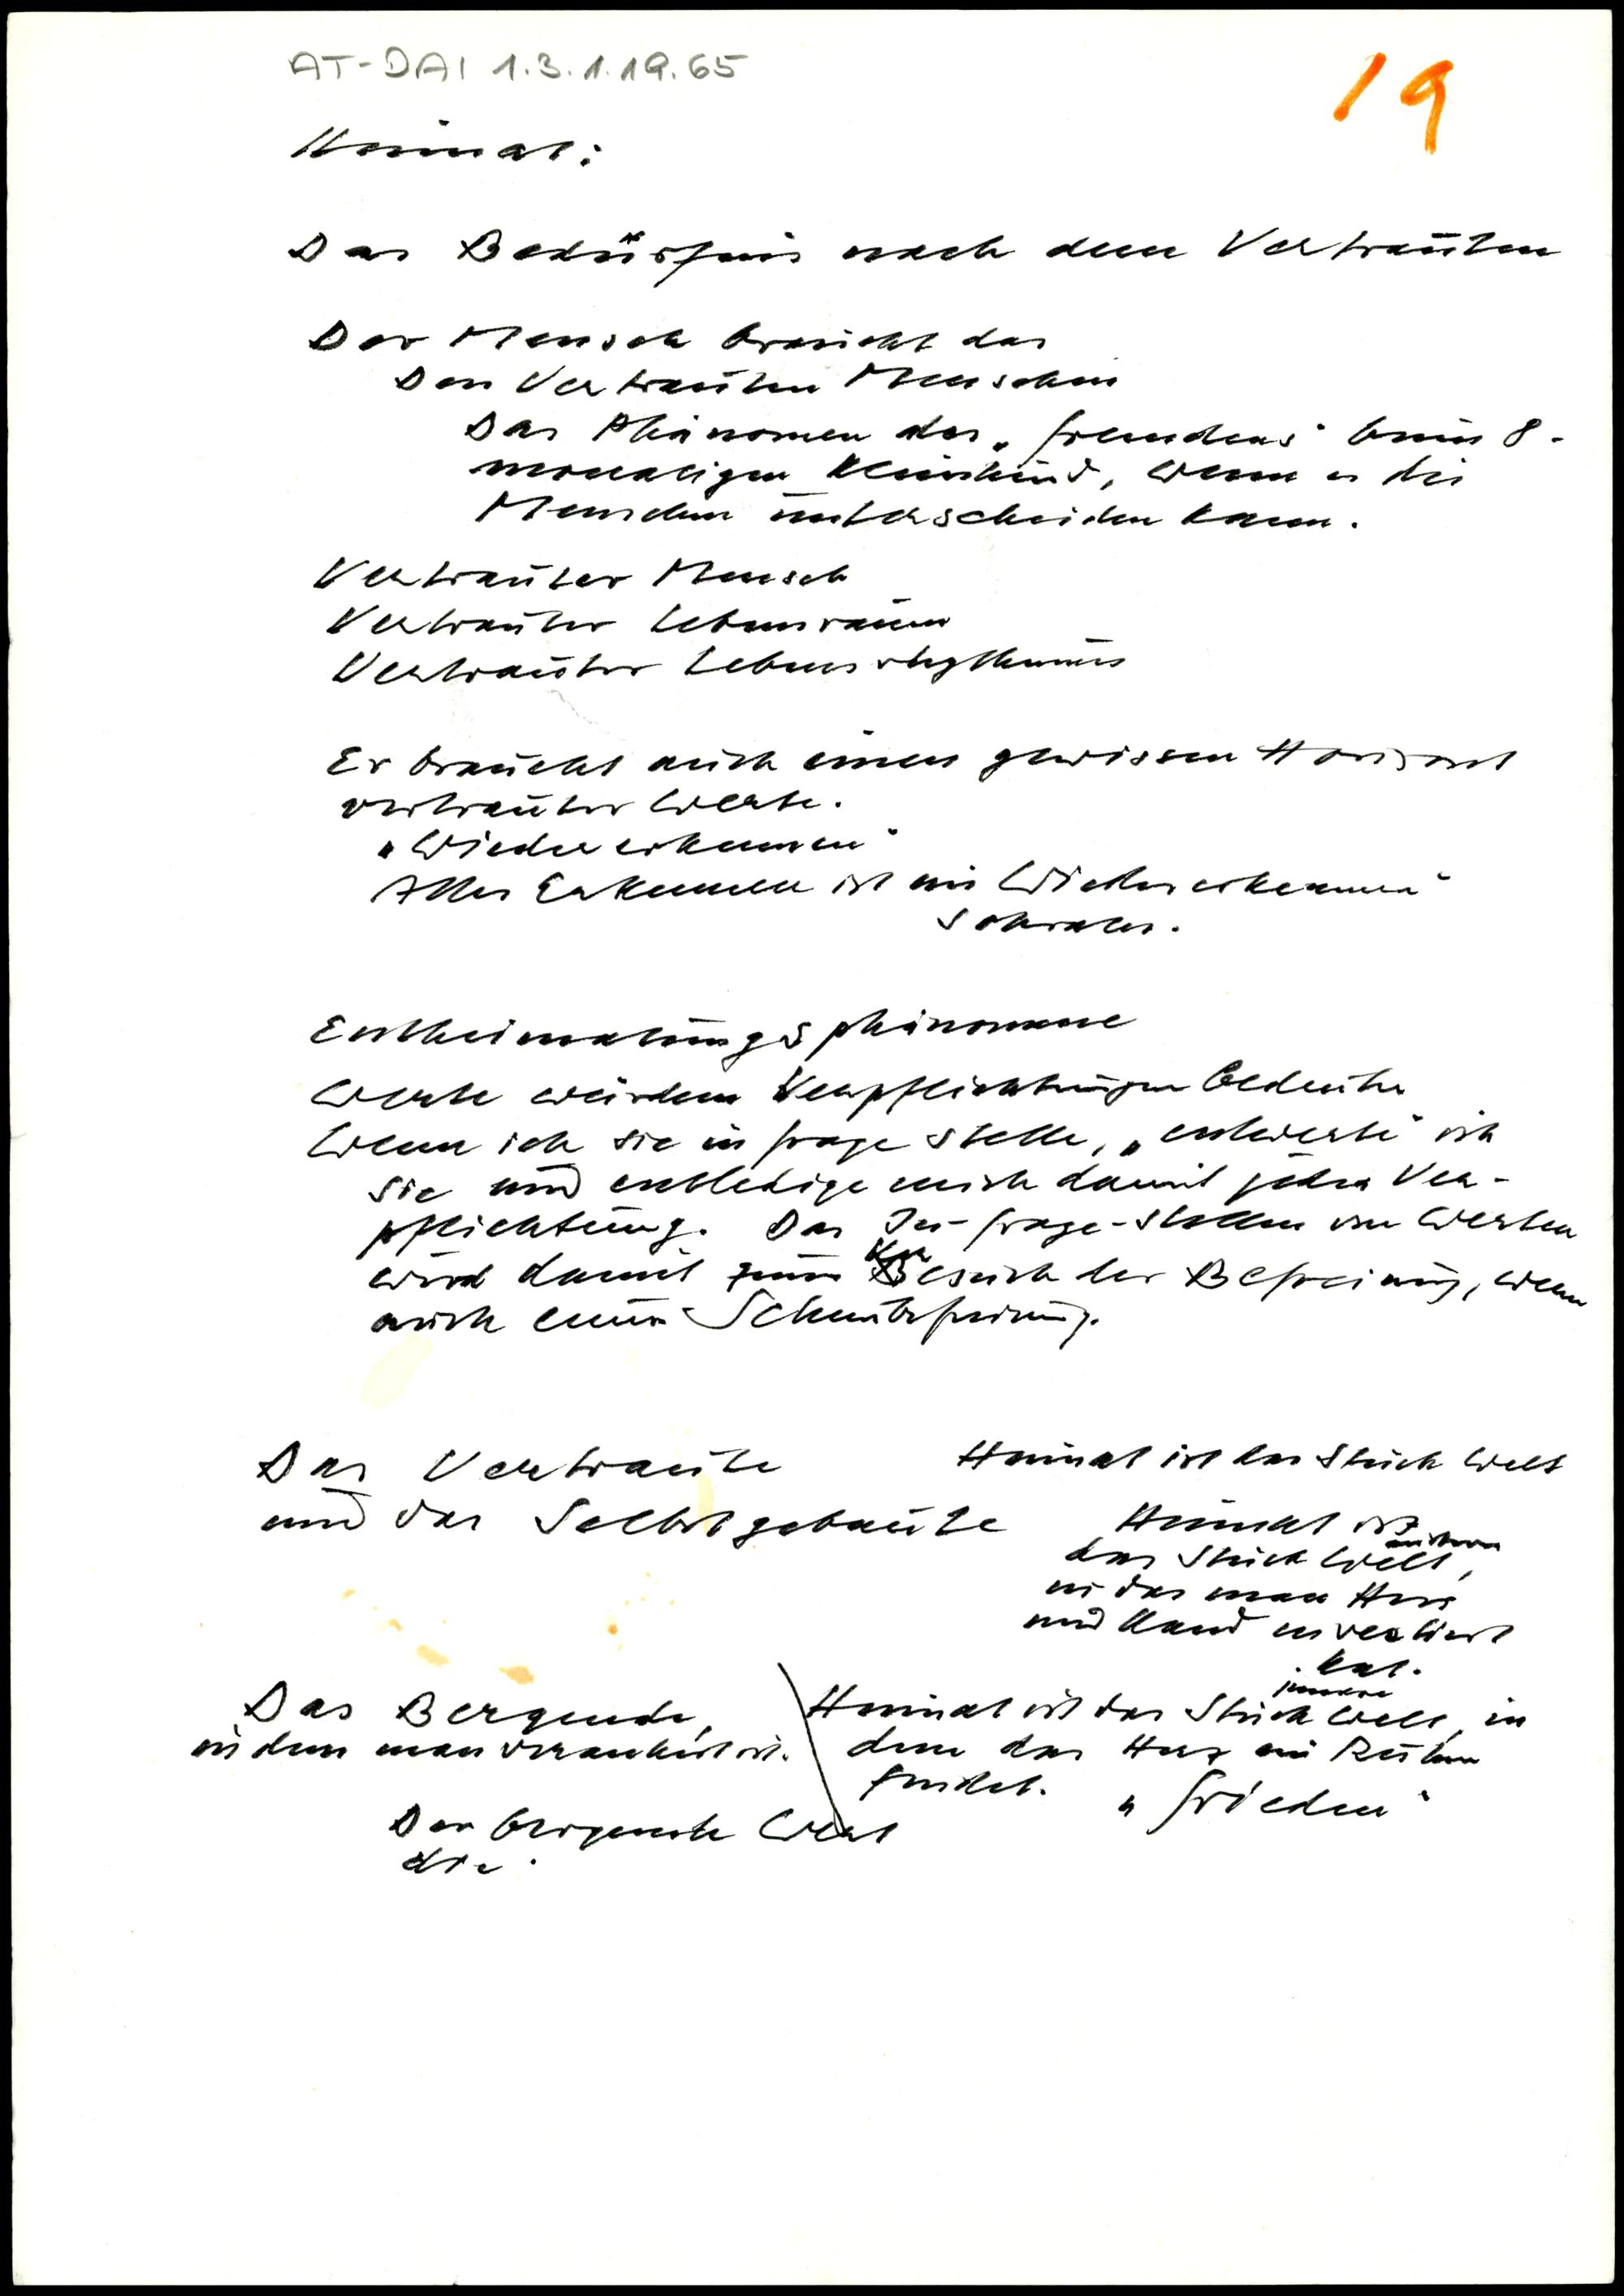 AT-DAI 1.3.1.19.65
19
Heimat:
Das Bedürfnis nach dem Vertrauten
Der Mensch braucht das
Den Vertrauten Menschen
Das Phänomen des „fremdens" beim 8-
monatigen Kleinkind, wenn es die
Menschen unterscheiden kann.
Vertrauter Mensch
Vertrauter Lebensraum
Vertrauter Lebensrhythmus
Er braucht auch einen gewissen Horizont
vertrauter Werte.
„Wiedererkennen"
Alles Erkennen ist ein Wiedererkennen"
Sokrates.
Entheimatungsphänomene
Werte würden Verpflichtungen bedeuten
Wenn ich sie in frage stelle, „entwerte" ich
sie und entledige mich damit jeder Ver-
pflichtung. Das In-frage-stellen von Werten
wird damit zum Versuch der Befreiung, wenn
auch einer Scheinbefreiung.
Das Vertraute
und das Selbstgebaute
Heimat ist das Stück Welt
Heimat ist
äußere
das Stück Welt,
in das man Herz
und Hand investiert
hat.
Das Bergende,
in dem man verankert ist.
innere
Heimat ist das Stück Welt, in
dem das Herz ein Ruhen
findet. „frieden"
Der bergende Wert
die